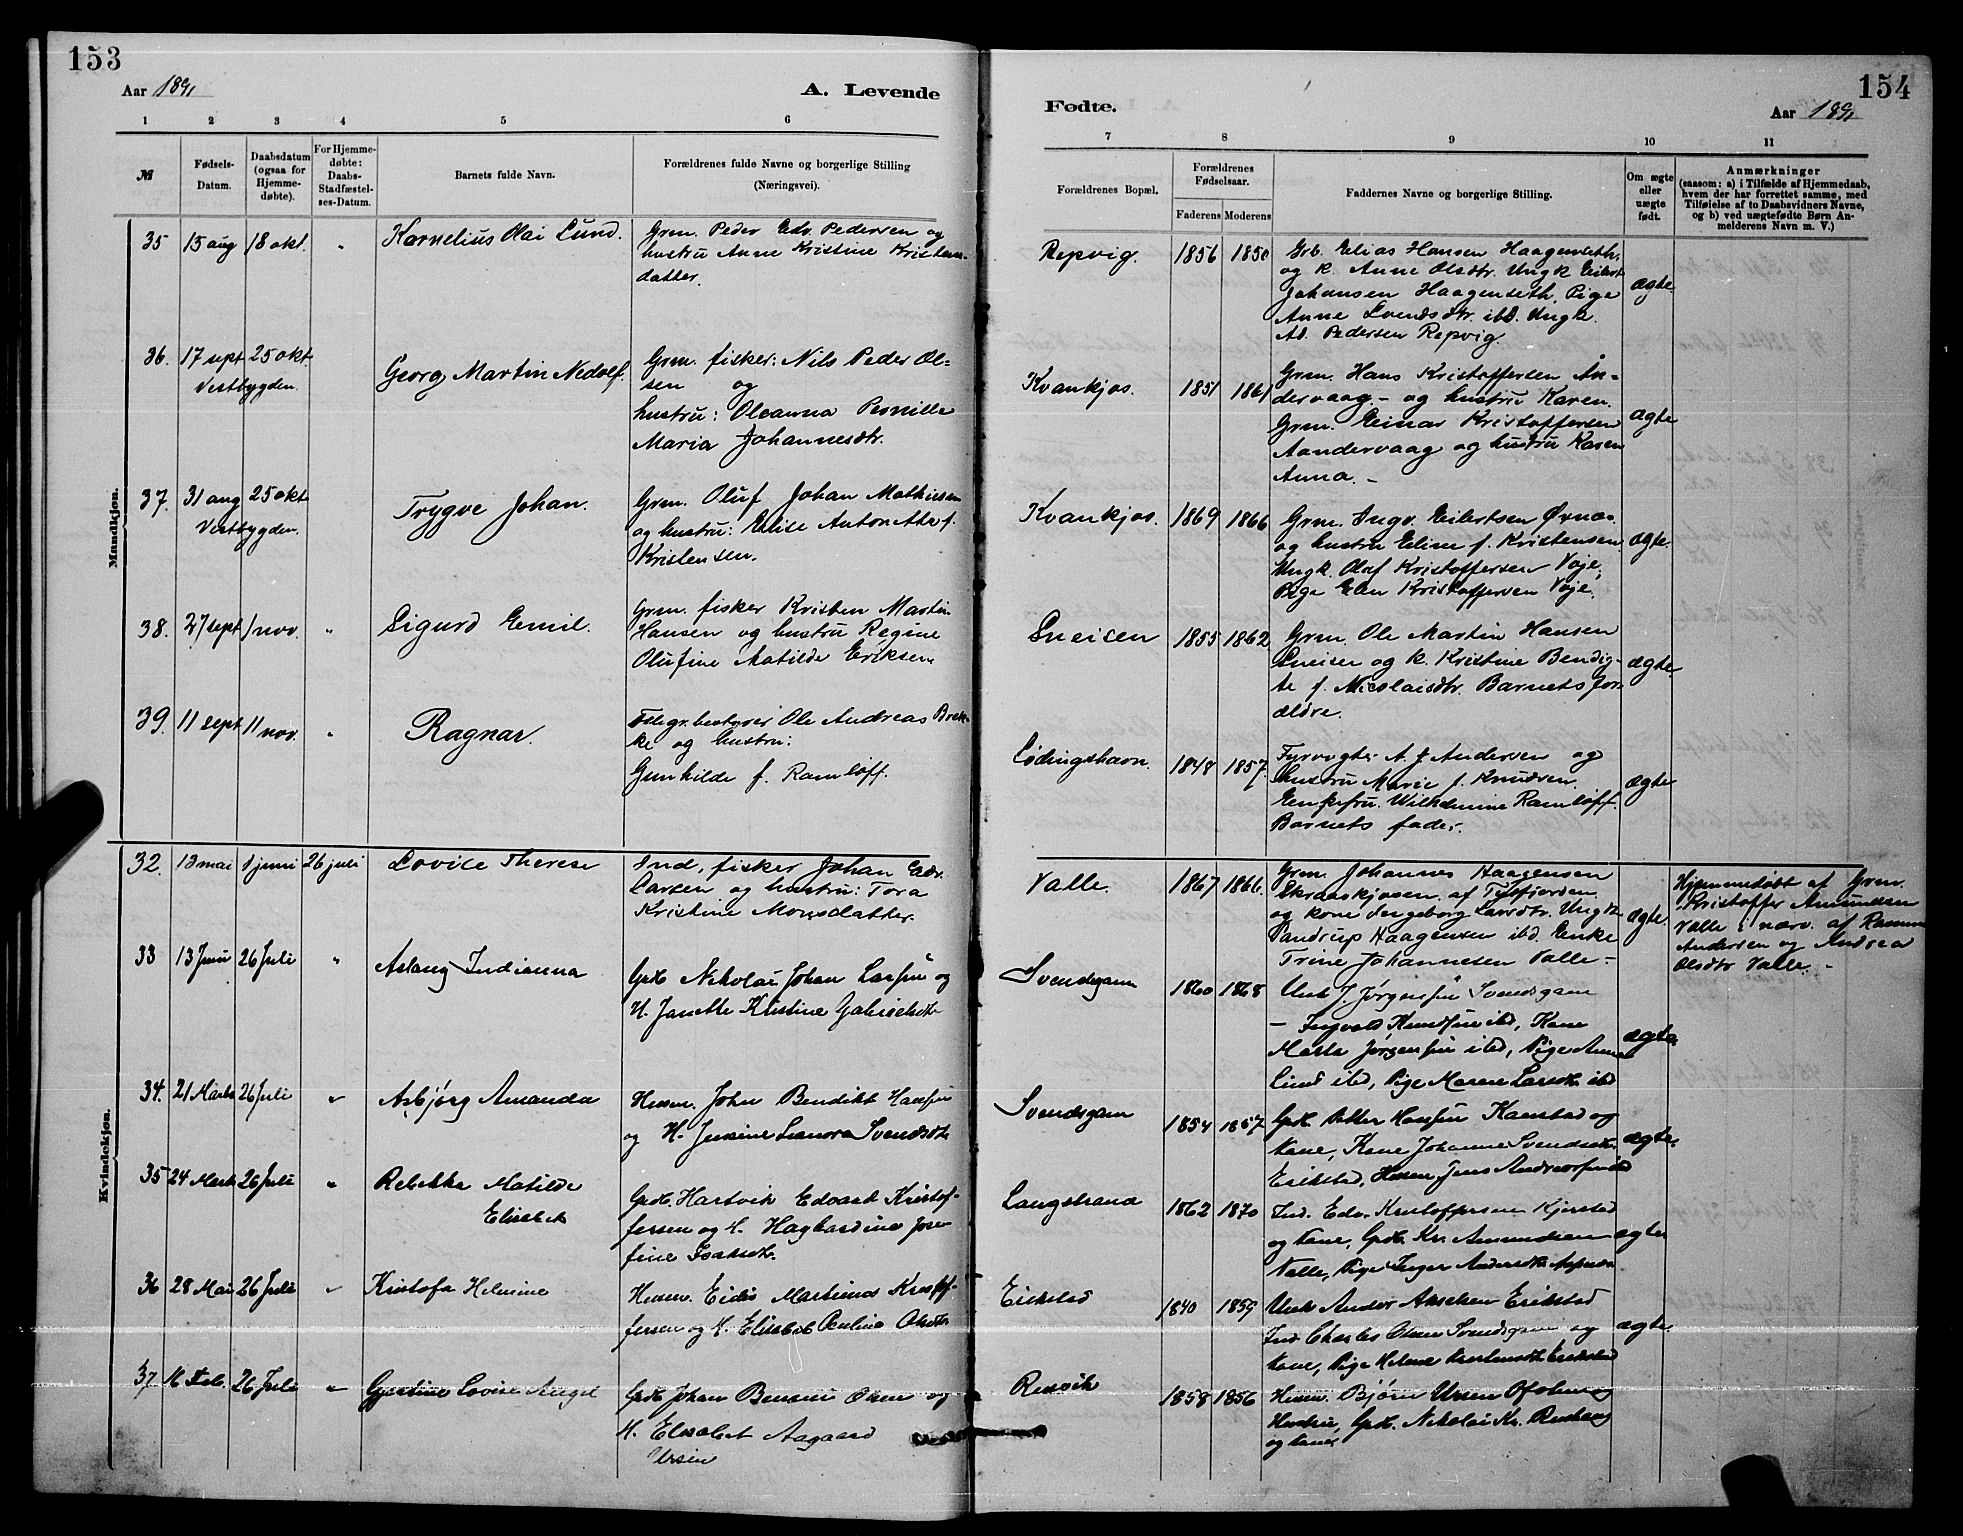 153
Aar 1891
A. Levende
1 2 3 4 5 6
№
Fødsels-Datum.
Daabsdatum (ogsaa for Hjemme-døbte).
For Hjemme-døbte: Daabs-Stadfæstel-ses-Datum.
Barnets fulde Navn.
Forældrenes fulde Navne og borgerlige Stilling (Næringsvei).
Mandkjøn.
35 15 aug 18 okt. "
Kornelius Olai Lund.
Grm. Peder Edv. Pedersen og
hustru Anne Kristine Kristens-
datter.
36. 17 sept 25 okt.
Vestbygden.
Georg Martin Nedolf.
Grm. fisker: Nils Peder Ol-
sen og
hustru: Oleanna Pernille
Maria Johannesdtr.
37. 31 aug 25 okt
Vestbygden.
Trygve Johan.
Grm. Oluf Johan Mathisen
og hustru: Elise Antonette f.
Kristensen.
38. 27 sept 1 nov. "
Sigurd Emil.
Grm. fisker Kristen Martin
Hansen og hustru Regine
Olufine Matilde Eriksen
39. 11 sept 11 nov. "
Ragnar.
Telegr.bestyrer Ole Andreas Brek-
ke og hustru:
Gunhilde f. Ramløff.
Kvindekjøn.
32. 13 mai 1 juni 26 juli
Lovise Therese
Ind. fisker Johan Edv.
Larsen og hustru: Tora
Kristine Monsdatter.
33 13 Juni 26 Juli "
Aslaug Indianna
Gpbr Nikolai Johan Larsen og
H. Janette Kristine Gabrielsdtr
34. 21 Marts 26 Juli "
Asbjørg Amanda
Husm. John Bendikt Hansen
og H. Jensine Leonora Svendsdtr
35 24 Marts 26 Juli "
Rebekka Matilde
Elisabet
Gpbr. Hartvik Edvart Kristof-
fersen og H. Hagbardine Jose-
fine Isaksdtr.
36 28 Mai 26 Juli "
Kristofa Helmine
Husm. Eidis Martinus Kristof-
fersen og H. Elisabet Paulina Olsdtr
37 Feb. 26 Juli "
Lovise Angel
Gpbr Johan Olsen og
H. Elisabet Aagaard
Ursin
154
Fødte.
Aar 1891
7 8 9 10 11
Forældrenes Bopæl.
Forældrenes Fødselsaar.
Faderens Moderens
Faddernes Navne og borgerlige Stilling.
Om ægte eller uægte født.
Anmærkninger
(saasom: a) i Tilfælde af Hjemmedaab,
hvem der har forrettet samme, med
Tilføielse af to Daabsvidners Navne,
og b) ved uægtefødte Børn An-
melderens Navn m. V.)
Repvig. 1856 1850
Grb. Elias Hansen Haagenseth.
og k. Anne Olsdtr. Ungk Eilert
Johansen Haagenseth. Pige
Anne Svendsdtr. ibd. Ungk.
Ad. Pedersen Repvig.
ægte
Kvankjos. 1851 1861
Grm. Hans Kristoffersen Ån-
dervaag. - og hustru Karen.
Grm. Einar Kristoffersen
Aandervaag og hustru Karen
Anna. -
ægte
Kvankjos. 1869 1866
Grm. Ingv. Eilertsen Øvnæs.
og hustru Eline f. Kristensen
Ungk. Olaf Kristoffersen Vøje.
Pige Elen Kristoffersen Vøje.
ægte.
Sneisen 1855 1862
Grm. Ole Martin Hansen
Sneisen og k. Kristine Bendig-
te f. Nicolaisdtr. Barnets for-
ældre.
ægte
Lødingshavn. 1848 1857
Fyrvogter A. J. Andersen og
hustru Marie f. Knudsen.
Enkefru. Wilhelmine Ramløff.
Barnets fader.
ægte
Valle. 1867 1866
Grm. Johannes Haagensen
Skraaskjosen af Tysfjorden
og kone Ingeborg Larsdtr. Ungk
Sandrup Haagensen ibd. Enke
Trine Johannesen Valle -
ægte
Hjemmedøbt af Grm.
Kristoffer Amundsen
Valle i nærv. af Rasmus
Andersen og Andrea
Olsdtr Valle. -
Svendsgam 1860 1868
Ungk J. Jørgensen Svendsgam
- Ingvald Knudsen ibd, Kone
Marta Jørgensen ibd, Pige Anna
Lind ibd, Pige Maren Larsdtr ibd
ægte
Svendsgam 1854 1857
Gpbr. Petter Hansen Kanstad og
Kone, Kone Johanne Svendsdtr
Erikstad, Husm. Jens Andreassen ibd
ægte
Langstrand 1862 1870
Ind. Edv. Kristoffersen Kjerstad
og Kone, Gpbr. Kr. Amundsen
Valle, Pige Inger Andersdtr
ægte
Erikstad 1840 1859
Ungk Andor Erikstad
Ind. Charles Olsen Svendsgam og
Kone, Pige Helene Erikstad
ægte.
Resvik 1858 1856
Husm. Bjørn Ursin
Hustru, Gpbr. Nikolai Kr.
og Kone